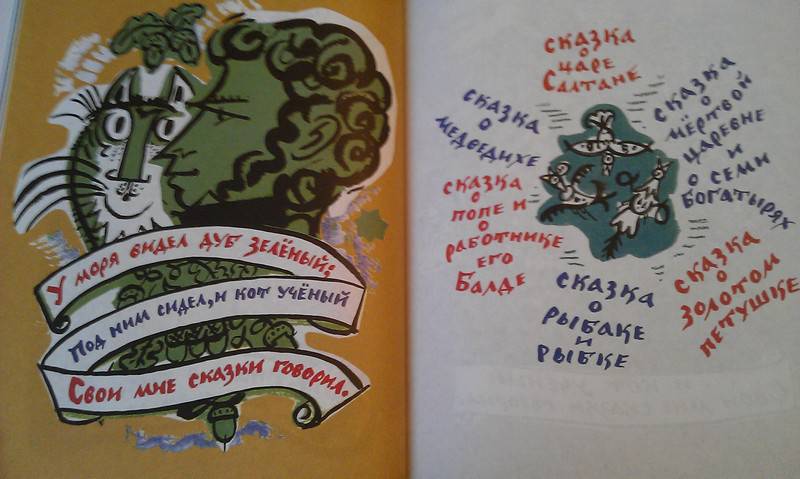 У моря видел дуб зелёный;
Под ним сидел, и кот учёный
Свои мне сказки говорил.
сказка
о
царе
Салтане
сказка
о
медведихе
сказка
о
мёртвой
царевне
и
о семи
богатырях
сказка
о
попе и
о
работнике
его
Балде
сказка
о
золотом
петушке
сказка
о
рыбаке
и
рыбке